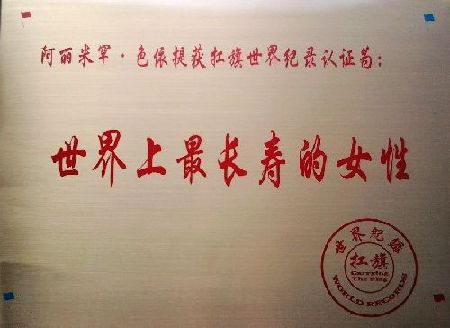 阿丽米罕·色依提获扛旗世界纪录认证为:
世界上最长寿的女性
世界纪录
扛旗
Carrying
The Flag
WORLD RECORDS